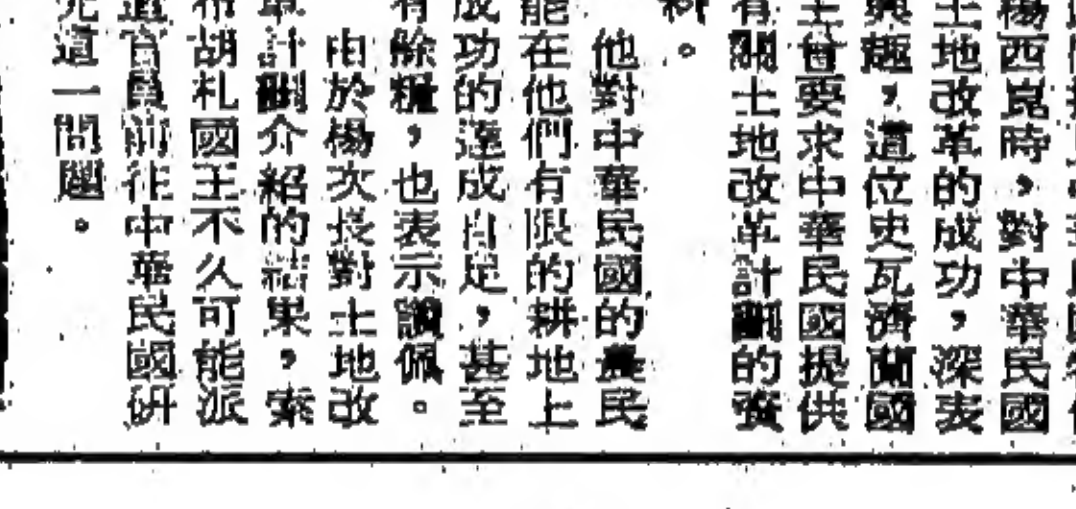 楊西崑時，對中華民國
土地改革的成功，深表
興趣，這位史瓦濟蘭國
王曾要求中華民國提供
有關土地改革計劃的資
料。
他對中華民國的農民
能在他們有限的耕地上
成功的達成自足，甚至
有餘糧，也表示讚佩。
由於楊次長對土地改
革計劃介紹的結果，索
布胡札國王不久可能派
遣官員前往中華民國研
究這一問題。